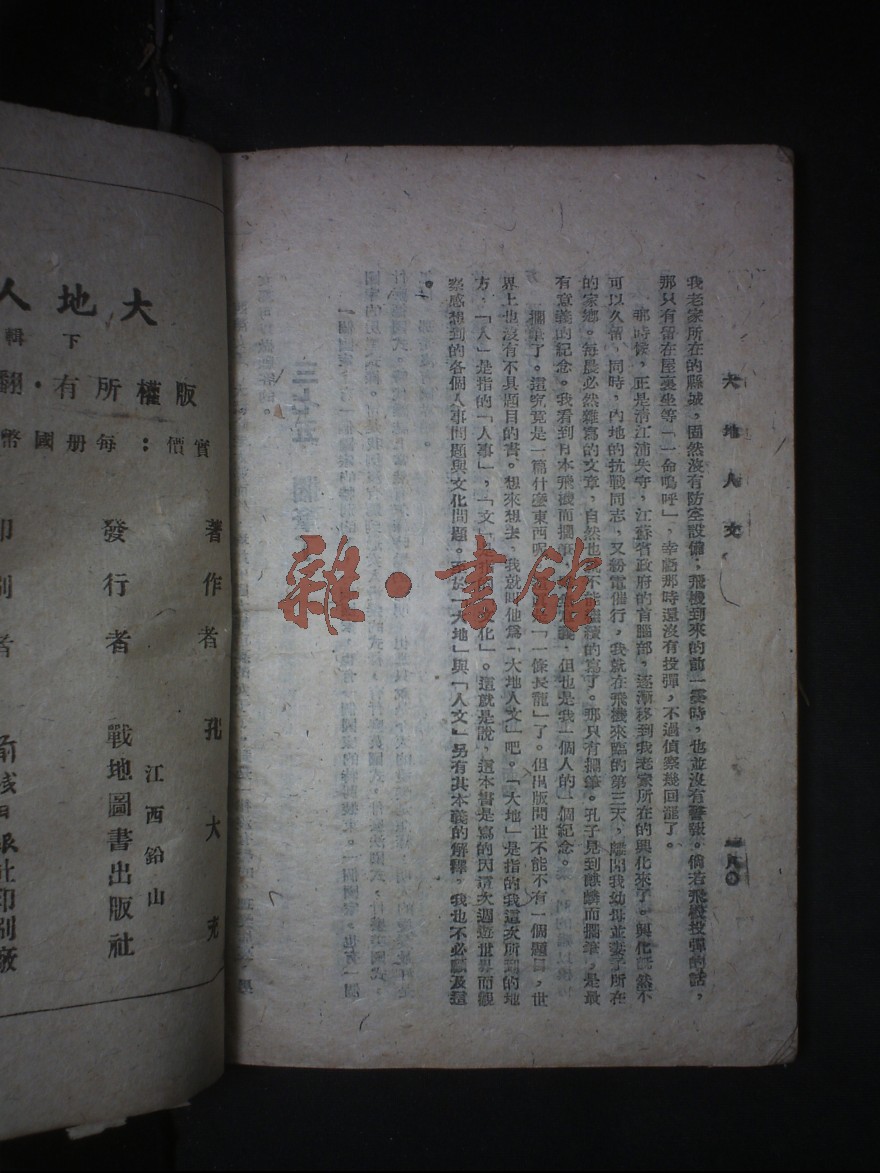 大地人文
我老家所在的縣城，固然沒有防空設備，飛機到來的前一霎時，也並沒有警報。倘若飛機投彈的話，
那只有留在屋裏坐等「一命嗚呼」，幸虧那時還沒有投彈，不過偵察幾回罷了。
那時候，正是清江浦失守，江蘇省政府的首腦部，逐漸移到我老家所在的興化來了。興化既然不
可以久留，同時，內地的抗戰同志，又紛電催行，我就在飛機來臨的第三天，離開我幼母並妻子所在
的家鄉。每晨必然雜寫的文章，自然也就不能繼續的寫了。那只有擱筆。孔子見到麒麟而擱筆，是最
有意義的紀念。我看到日本飛機而擱筆，但也是我一個人的一個紀念。
擱筆了。這究竟是一篇什麼東西呢「一條長龍」了。但出版問世不能不有一個題目，世
界上也沒有不具題目的書。想來想去，我就叫他為「大地人文」吧。「大地」是指的我這次所到的地
方，「人」是指的「人事」，「文」文化」。這就是說，這本書是寫的因這次週遊世界而觀
察感想到的各個人事問題與文化問題。至於「大地」與「人文」另有其本義的解釋，我也不必顧及這
些。
雜·書館
大地人
下輯
版權所有·翻
實價：每册國幣
著作者 孔大充
發行者 戰地圖書出版社
江西鉛山
印刷者 前線日報社印刷廠